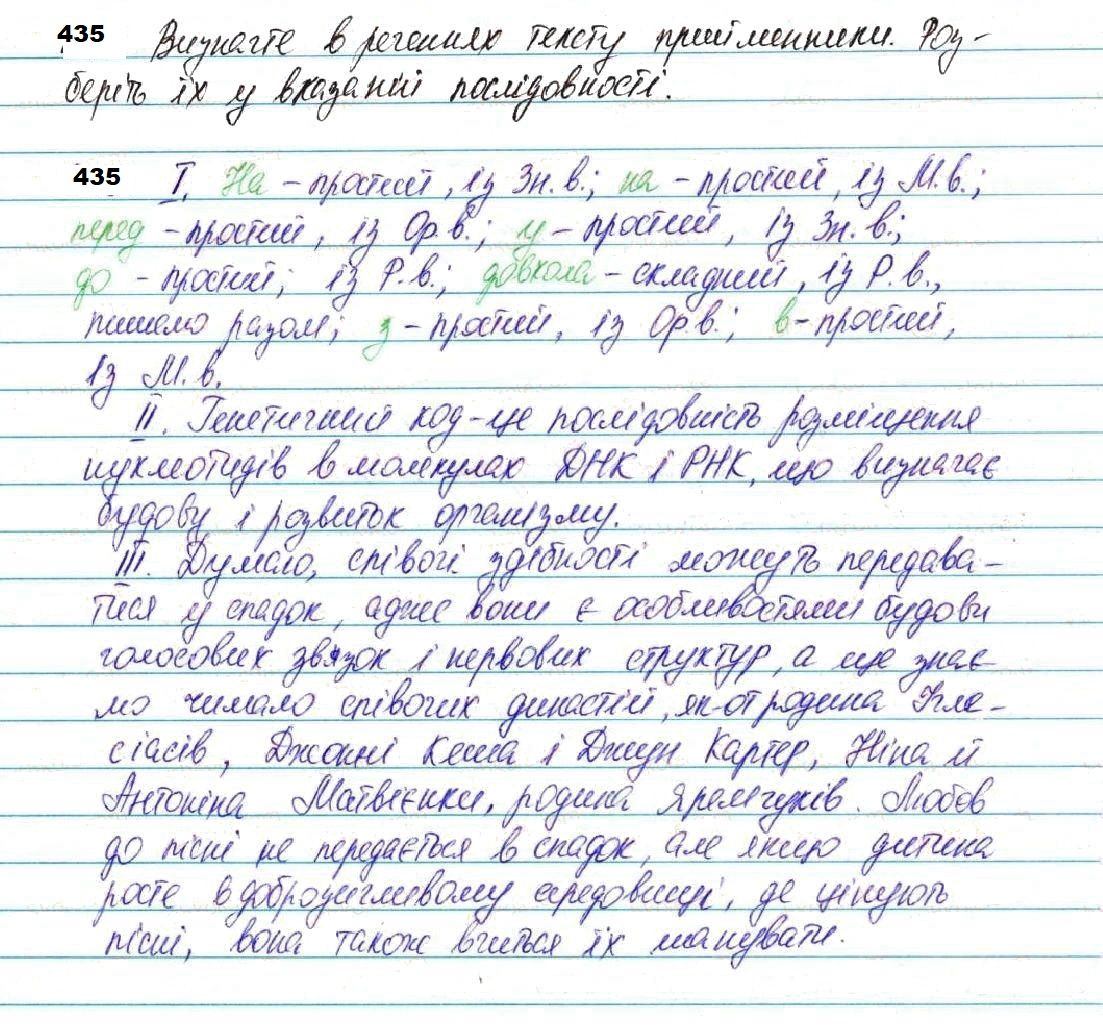 435 Визначте в реченнях тексту прийменники. Роз-
беріть їх у вказаній послідовності.
435 I. На – простий, із Зн. в.; на – простий, із М. в.;
перед – простий, із Ор. в.; у – простий, із Зн. в.;
до – простий; із Р. в.; довкола – складний, із Р. в.,
пишемо разом; з – простий, із Ор. в.; в – простий,
із М. в.
II. Генетичний код – це послідовність розміщення
нуклеотидів в молекулах ДНК і РНК, що визначає
будову і розвиток організму.
III. Думаю, співочі здібності можуть передава-
тися у спадок, адже вони є особливостями будови
голосових звязок і нервових структур, а ще знає-
мо чимало співочих династій, як-от родина Ігле-
сіасів, Джонні Кеша і Джун Картер, Ніна й
Антоніна Матвієнки, родина Яремчуків. Любов
до пісні не передається в спадок, але якщо дитина
росте в доброзичливому середовищі, де цінують
пісні, вона також вчиться їх шанувати.